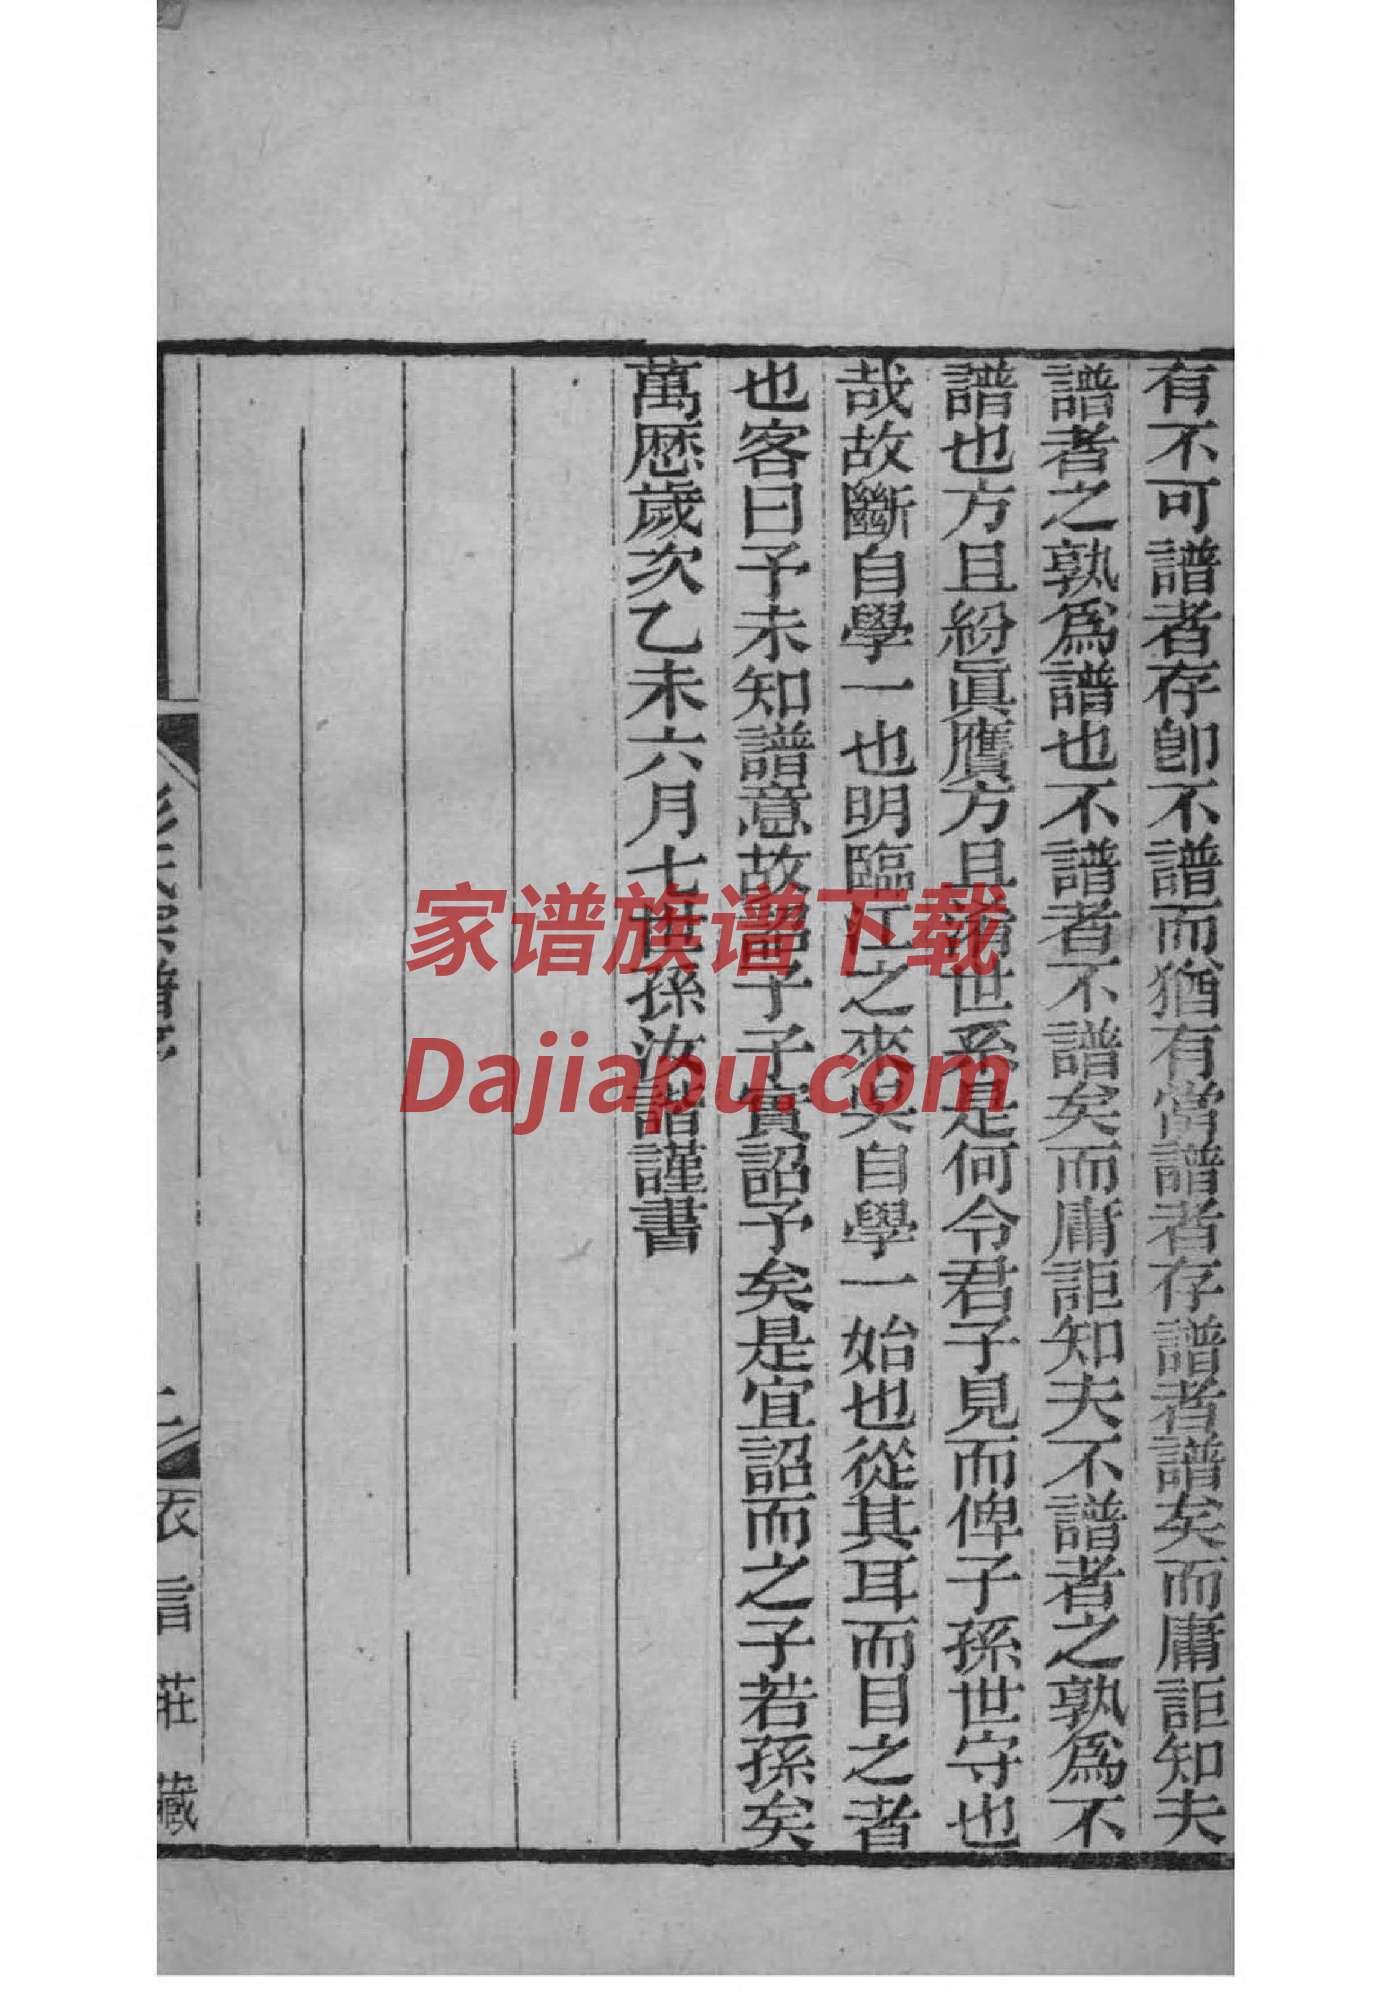 有不可譜者存卽不譜而猶有當譜者存譜者譜矣而庸詎知夫
譜者之孰爲譜也不譜者不譜矣而庸詎知夫不譜者之孰爲不
譜也方且紛眞贋方且淆世系是何令君子見而俾子孫世守也
哉故斷自學一也明臨江之來矣自學一始也從其耳而目之者
也客曰予未知譜意故詔子子實詔予矣是宜詔而之子若孫矣
萬歷歲次乙未六月七世孫汝諧謹書
家谱族谱下载
Dajiapu.com